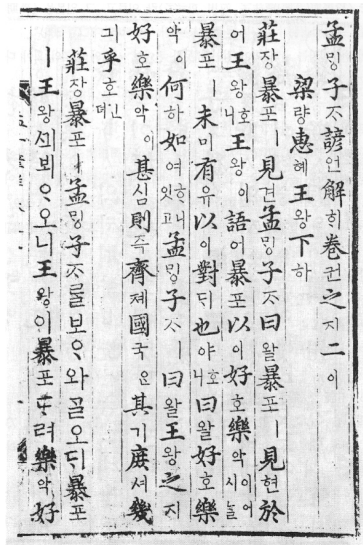 孟ᄆᆡᆼ子ᄌᆞ諺언解ᄒᆡ卷권之지二이
梁량惠혜王왕下하
莊장暴포ㅣ見견孟ᄆᆡᆼ子ᄌᆞ曰왈暴포ㅣ見현於
어王왕호니王왕이語어暴포以이好호樂악이어시ᄂᆞᆯ
暴포ㅣ未미有유以이對ᄃᆡ也야호니曰왈好호樂
악이何하如여ᄒᆞ니잇고孟ᄆᆡᆼ子ᄌᆞㅣ曰왈王왕之지
好호樂악이甚심則즉齊졔國국은其기庶셔幾
긔乎호인뎌
莊장暴포ㅣ孟ᄆᆡᆼ子ᄌᆞᄅᆞᆯ보ᄋᆞ와ᄀᆞᆯ오ᄃᆡ暴포
ㅣ王왕ᄭᅴ뵈ᄋᆞ오니王왕이暴포ᄃᆞ려樂악好